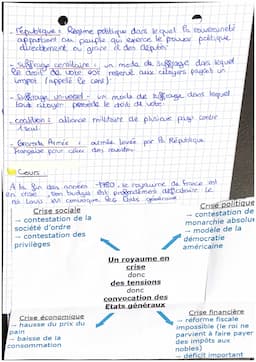 - République : Régime politique dans lequel la souveraineté
appartient au peuple qui exerce le pouvoir politique
directement ou grâce à des députés.
- Suffrage censitaire : un mode de suffrage dans lequel
le droit de vote est réservé aux citoyens payant un
impôt (appelé le cens)
- Suffrage universel - un mode de suffrage dans lequel
tout citoyen possède le droit de vote.
- coalition : alliance militaire de plusieurs pays contre
1 seul.
- Grande Armée : armée levée par la République
Française pour
Cours :
À la fin des années 1780, le royaume de France est
en crise son budget est
Louis XVI convoque les États généraux
Crise sociale
- contestation de la
société d'ordre
- contestation des
privilèges
Crise politique
- contestation de
monarchie absolue
- modèle de la
démocratie
américaine
Un royaume en
crise
donc
des tensions
donc
convocation des
Etats généraux
Crise économique
- hausse du prix du
pain
- baisse de la
consommation
Crise financière
- réforme fiscale
impossible (le roi ne
parvient à faire payer
des impôts aux
nobles)
- déficit important